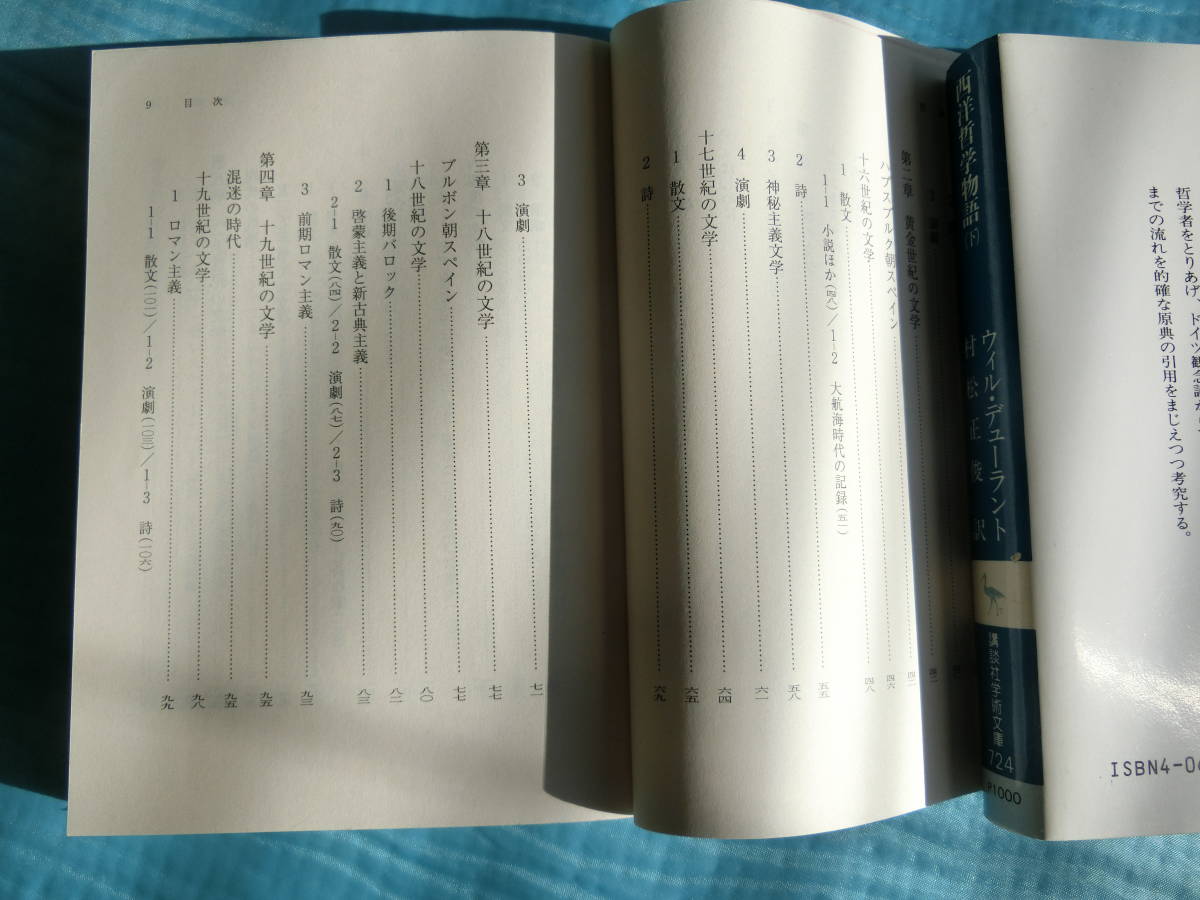 第二章　黄金世紀の文学……四二
ハプスブルク朝スペイン……四六
十六世紀の文学……四八
1　散文……五五
1-1　小説ほか（四八）／1-2　大航海時代の記録（五一）
2　詩……五八
3　神秘主義文学……六一
4　演劇……六四
十七世紀の文学
1　散文……六五
2　詩……六九
3　演劇……七一
第三章　十八世紀の文学……七七
ブルボン朝スペイン……七七
十八世紀の文学……八〇
1　後期バロック……八二
2　啓蒙主義と新古典主義……八三
2-1　散文（八四）／2-2　演劇（八七）／2-3　詩（九〇）
3　前期ロマン主義……九三
第四章　十九世紀の文学……九五
混迷の時代……九五
十九世紀の文学……九八
1　ロマン主義……九九
1-1　散文（一〇一）／1-2　演劇（一〇三）／1-3　詩（一〇六）
9　目次
西洋哲学物語（下）
ウィル・デューラント
村松正俊訳
講談社学術文庫
724
P1000
哲学者をとりあげ、ドイツ観念論
までの流れを的確な原典の引用をまじえつつ考究する。
ISBN4-06